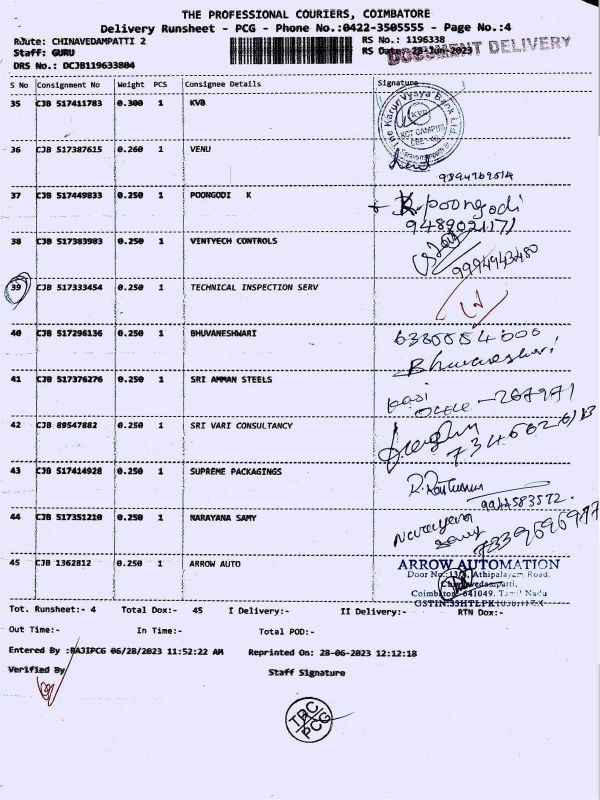 THE PROFESSIONAL COURIERS, COIMBATORE
Delivery Runsheet - PCG - Phone No.:0422-3505555 - Page No.:4
Route: CHINAVEDAMPATTI 2 RS No.: 1196338
Staff: GURU RS Date: 28-Jun-2023
DOCUMENT DELIVERY
DRS No.: DCJB119633804
S No Consignment No Weight PCS Consignee Details Signature
35 CJB 517411783 0.300 1 KVB
The Karur Vysya Bank Ltd.
KVB
KCT CAMPUS
36 CJB 517387615 0.260 1 VENU
9894769514
37 CJB 517449833 0.250 1 POONGODI K
K.poongodi
9489021171
38 CJB 517383983 0.250 1 VINTYECH CONTROLS
9994943480
39 CJB 517333454 0.250 1 TECHNICAL INSPECTION SERV
40 CJB 517296136 0.250 1 BHUVANESHWARI
Bhuvaneshwari
41 CJB 517376276 0.250 1 SRI AMMAN STEELS
42 CJB 89547882 0.250 1 SRI VARI CONSULTANCY
43 CJB 517414928 0.250 1 SUPREME PACKAGINGS
9944583572.
44 CJB 517351210 0.250 1 NARAYANA SAMY
Narayana
Samy
45 CJB 1362812 0.250 1 ARROW AUTO
ARROW AUTOMATION
Athipalayam Road,
Coimbatore 641049. Tamil Nadu
Tot. Runsheet:- 4 Total Dox:- 45 I Delivery:- II Delivery:- RTN Dox:-
Out Time:- In Time:- Total POD:-
Entered By :RAJIPCG 06/28/2023 11:52:22 AM Reprinted On: 28-06-2023 12:12:18
Verified By Staff Signature
TPC
PCG